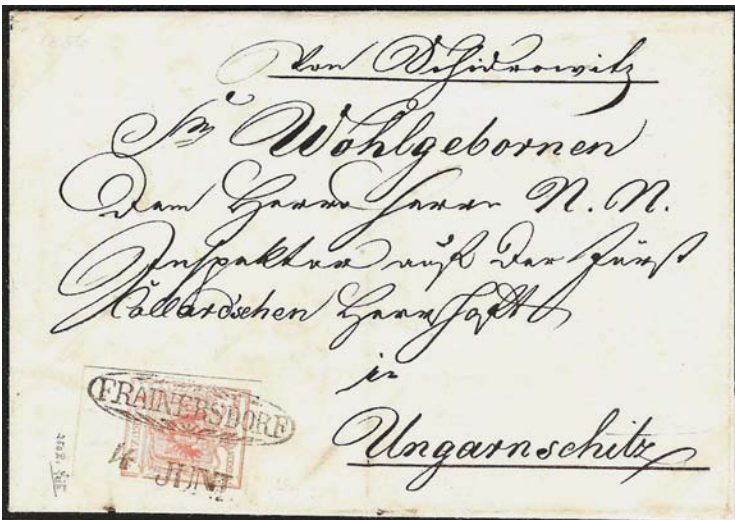 Von Schidrowitz
Sr Wohlgebornen
Dem Herrn Herrn N. N.
Inspektor auf der Fürst
Collard'schen Herrschaft
in
Ungarnschitz
FRAINERSDORF
14 JUNI